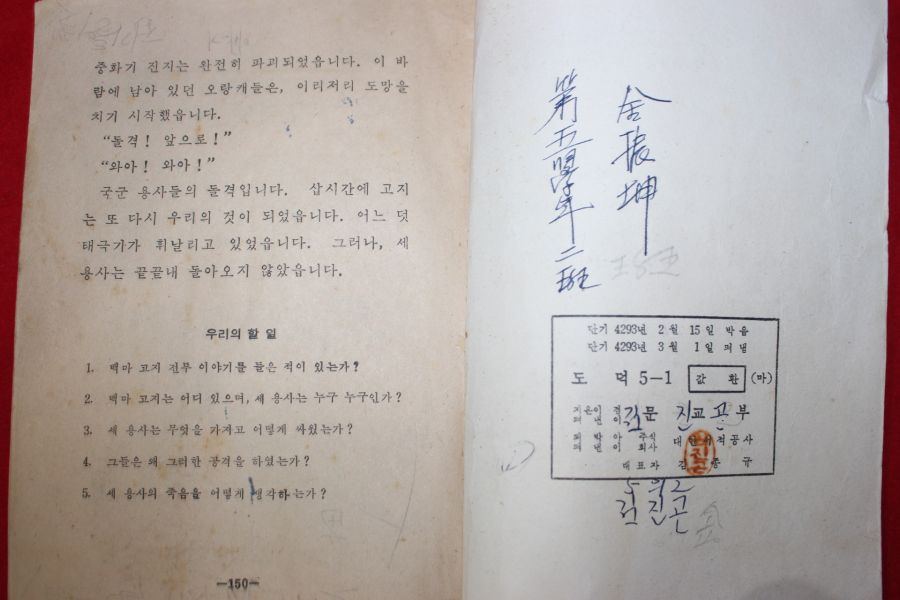 중화기 진지는 완전히 파괴되었읍니다. 이 바
람에 남아 있던 오랑캐들은, 이리저리 도망을
치기 시작했읍니다.
“돌격! 앞으로!”
“와아! 와아!”
국군 용사들의 돌격입니다. 삽시간에 고지
는 또 다시 우리의 것이 되었읍니다. 어느 덧
태극기가 휘날리고 있었읍니다. 그러나, 세
용사는 끝끝내 돌아오지 않았읍니다.
우리의 할 일
1. 백마 고지 전투 이야기를 들은 적이 있는가?
2. 백마 고지는 어디 있으며, 세 용사는 누구 누구인가?
3. 세 용사는 무엇을 가지고 어떻게 싸웠는가?
4. 그들은 왜 그러한 공격을 하였는가?
5. 세 용사의 죽음을 어떻게 생각하는가?
—150—
金振坤
第五學年 二班
단기 4293년 2월 15일 박음
단기 4293년 3월 1일 펴냄
도덕 5-1 값 환 (마)
지은이 겸
펴낸이 문교부
박아
펴낸이 주식
회사 대한서적공사
대표자 김종규
김진곤
김진곤